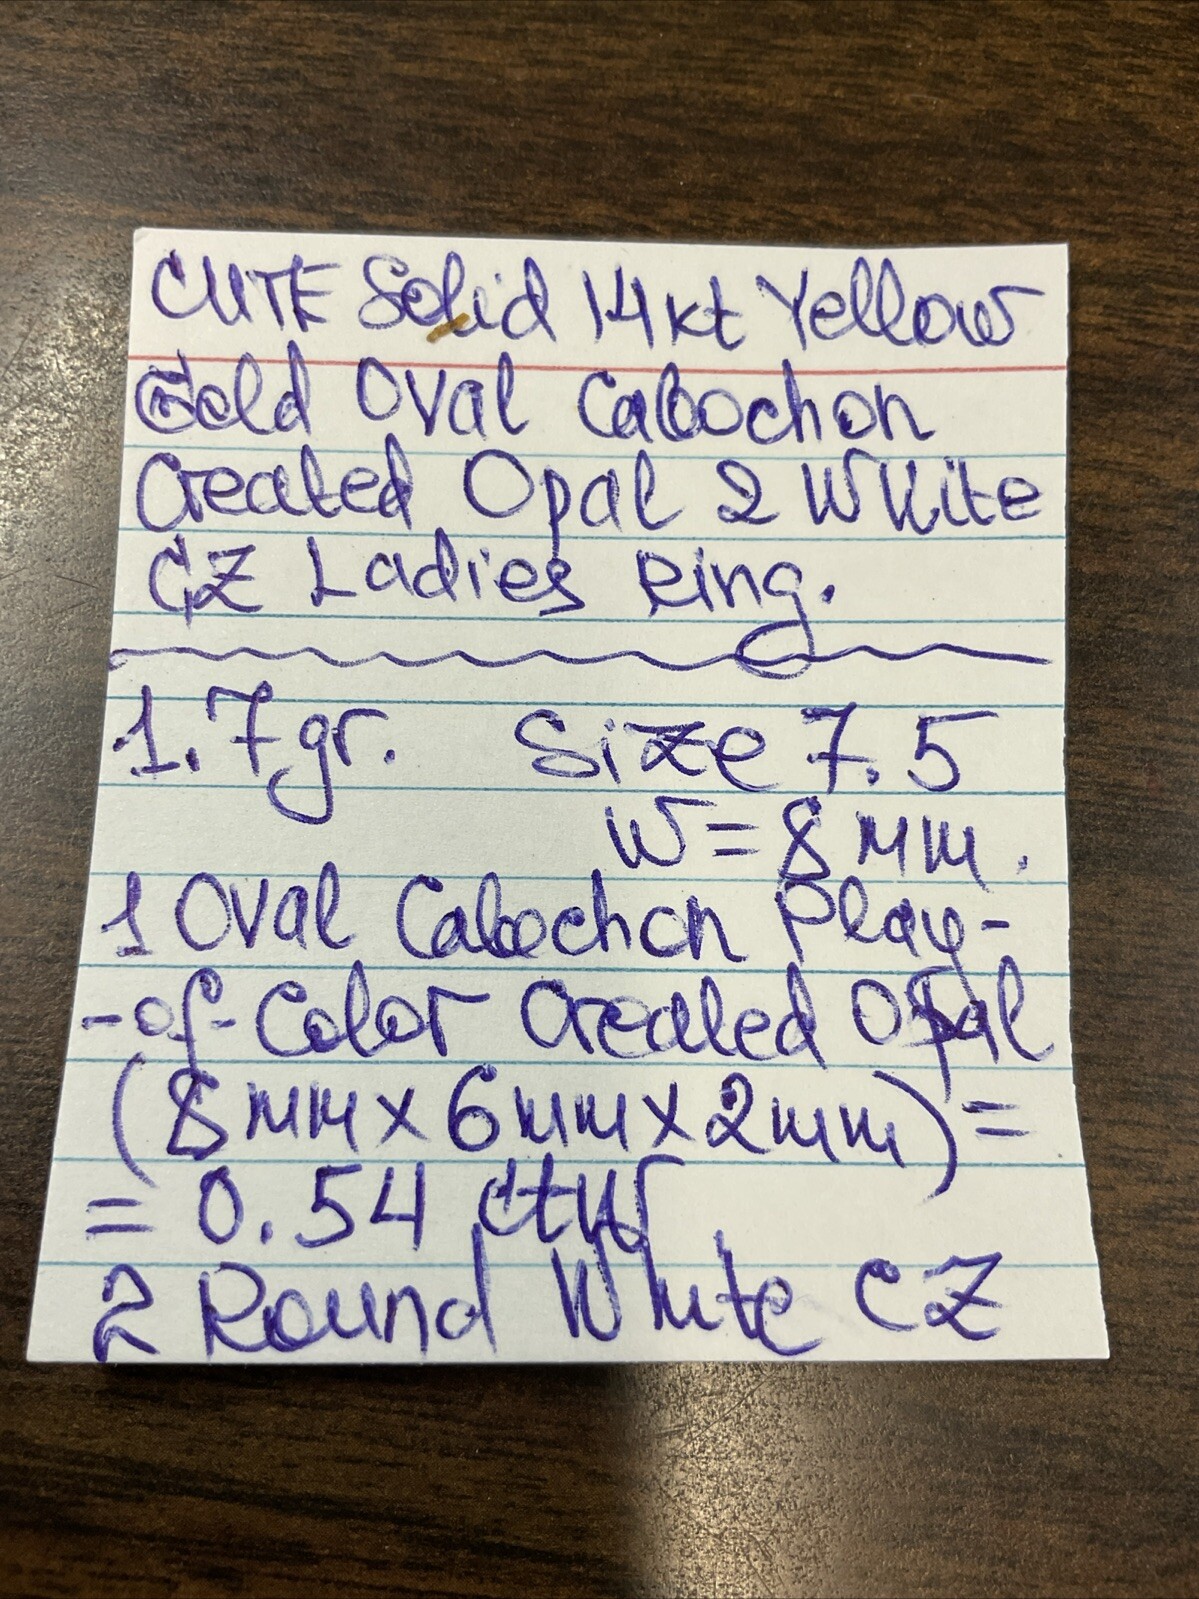 CUTE Solid 14kt Yellow
Gold Oval Cabochon
Created Opal 2 White
CZ Ladies Ring.
1.7gr. Size 7.5
W=8mm.
1 Oval Cabochon Play-
-of-Color Created Opal
(8mm x 6mm x 2mm)=
=0.54 ctw
2 Round White CZ